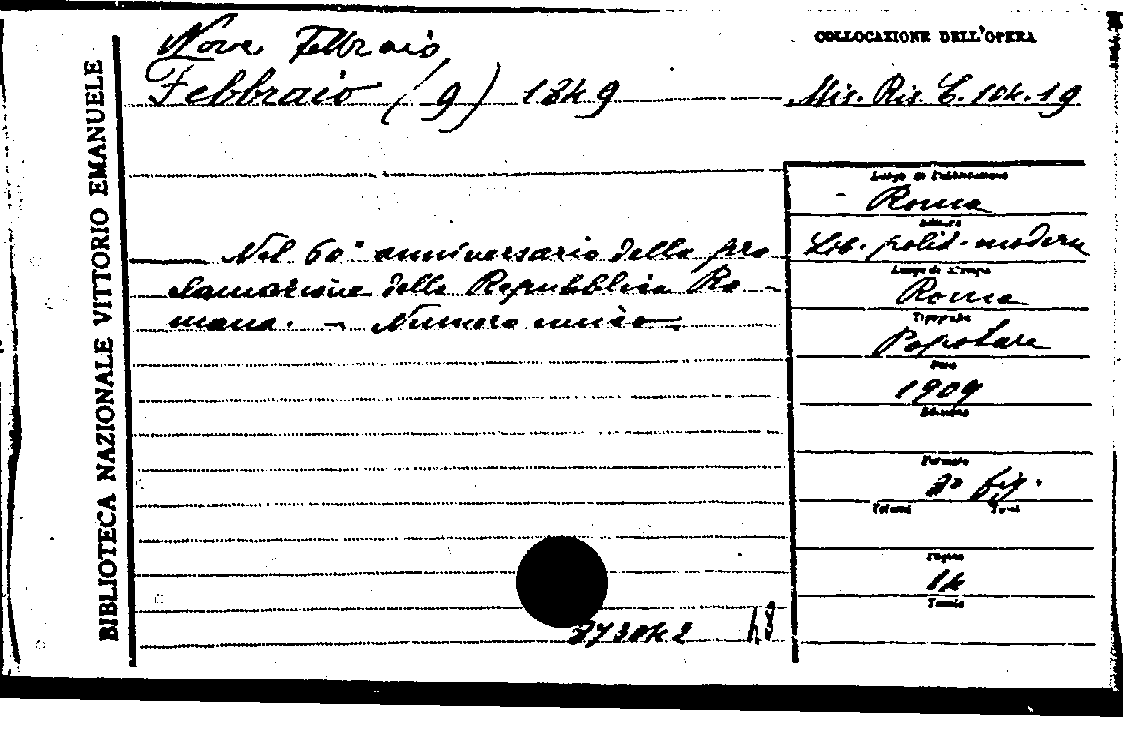 BIBLIOTECA NAZIONALE VITTORIO EMANUELE
Nove Febbraio
Febbraio (9) 1849
COLLOCAZIONE DELL'OPERA
Mis. Ris. C. 104.19
Nel 60° anniversario della pro
clamazione della Repubblica Ro-
mana. - Numero unico
Luogo di Pubblicazione
Roma
Editore
Lib. polit. moderna
Luogo di Stampa
Roma
Tipografia
Popolare
Data
1909
Edizione
Formato
2° fig.
Volumi Tomi
Pagine
14
Tavole